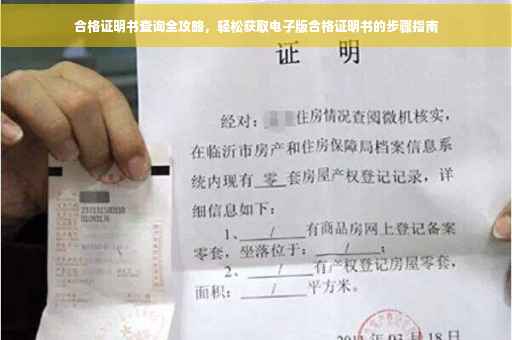 合格证明书查询全攻略，轻松获取电子版合格证明书的步骤指南
证 明
经对： 住房情况查阅微机核实，
在临沂市房产和住房保障局档案信息系
统内现有 零 套房屋产权登记记录，详
细信息如下：
1、 / 有商品房网上登记备案
零套，坐落位于： / ；
2、 / 有产权登记房屋零套，
面积： / 平方米。
月 18 日